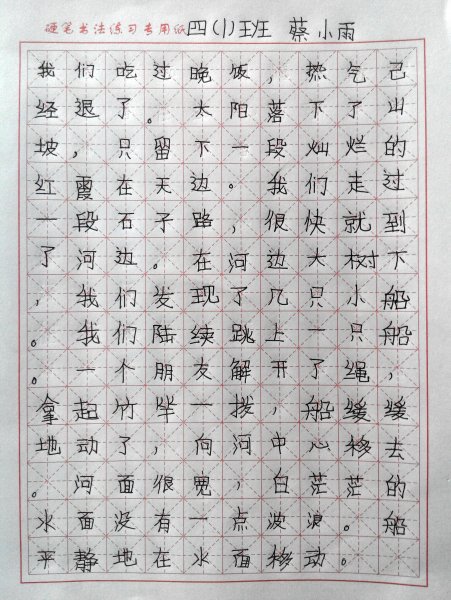 硬笔书法练习专用纸 四(1)班 蔡小雨
我们吃过晚饭，热气已
经退了。太阳落下了山
坡，只留下一段灿烂的
红霞在天边。我们走过
一段石子路，很快就到
了河边。在河边大树下
，我们发现了几只小船
。我们陆续跳上一只船
。一个朋友解开了绳，
拿起竹竿一拨，船缓缓
地动了，向河中心移去
。河面很宽，白茫茫的
水面没有一点波浪。船
平静地在水面移动。